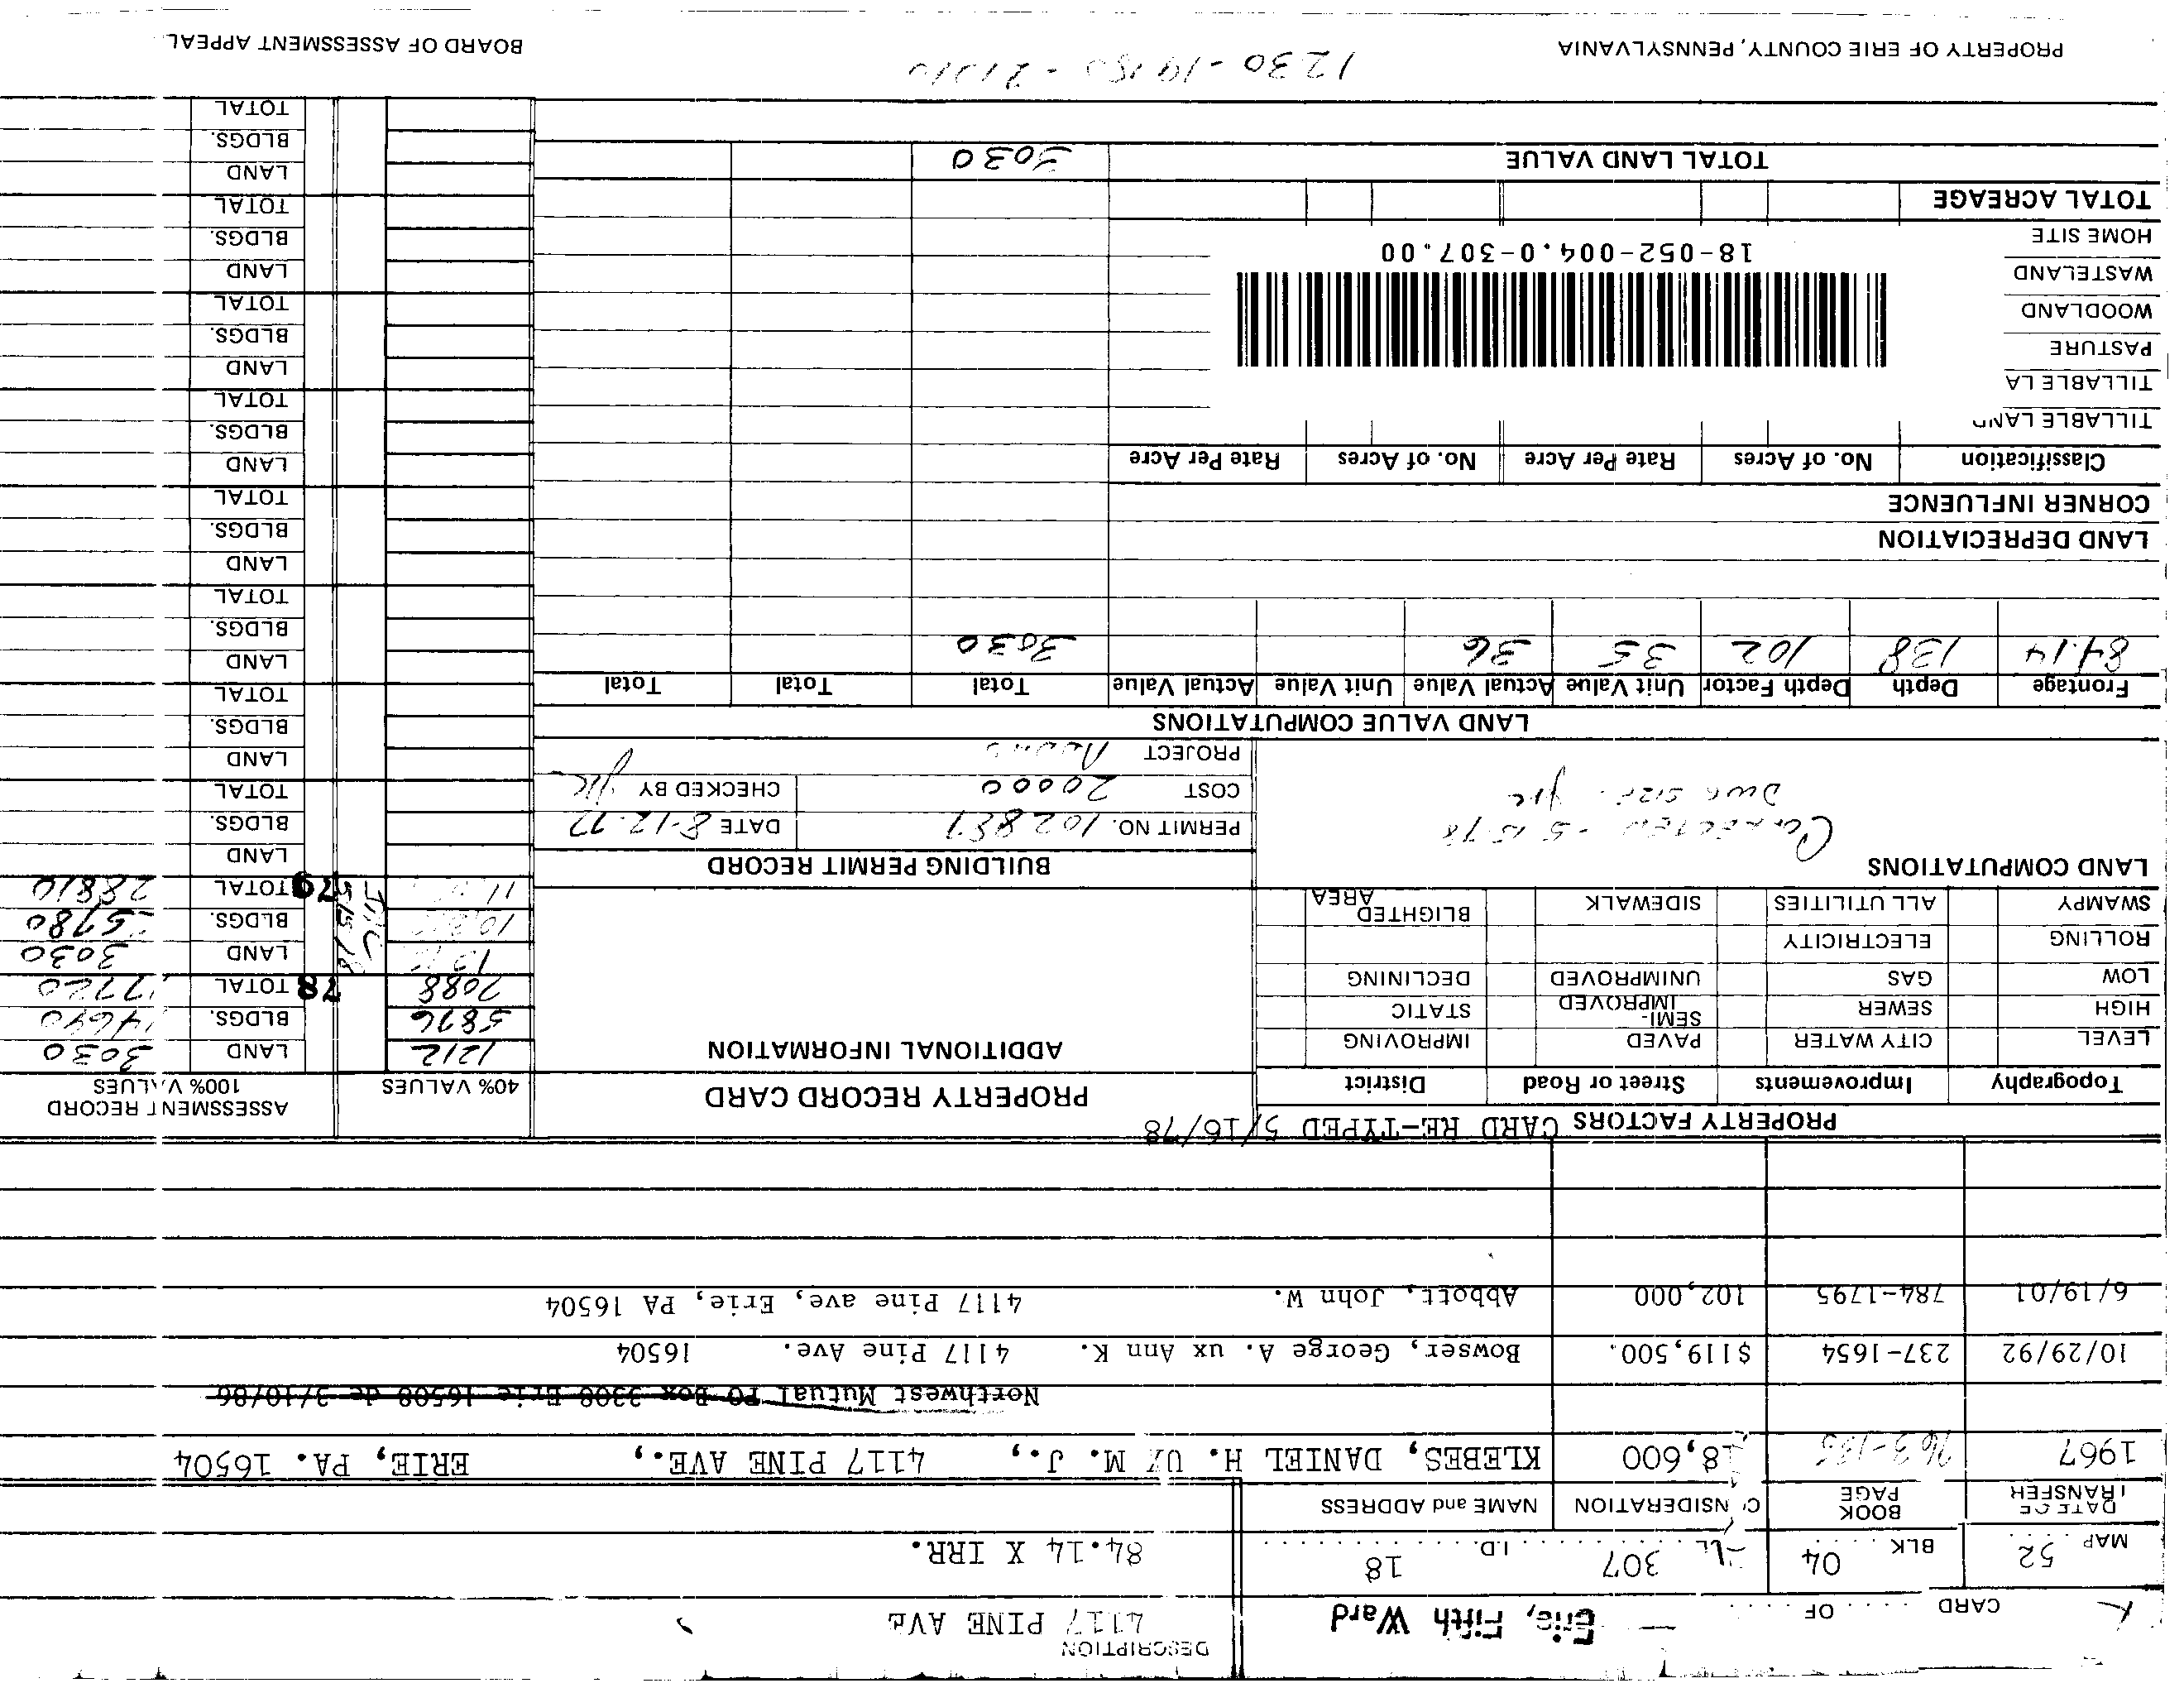 DESCRIPTION
CARD OF Erie, Fifth Ward 4117 PINE AVE
MAP 52 BLK 04 307 I.D. 18 84.14 X IRR.
DATE OF TRANSFER BOOK PAGE CONSIDERATION NAME and ADDRESS
1967 18,600 KLEBES, DANIEL H. UX M. J., 4117 PINE AVE., ERIE, PA. 16504
Northwest Mutual PO Box 3308 Erie 16508 de 3/10/86
10/29/92 237-1654 $119,500. Bowser, George A. ux Ann K. 4117 Pine Ave. 16504
6/19/01 784-1795 102,000 Abbott, John W. 4117 Pine ave, Erie, PA 16504
PROPERTY FACTORS CARD RE-TYPED 5/16/78
Topography Improvements Street or Road District
LEVEL CITY WATER PAVED IMPROVING
HIGH SEWER SEMI-IMPROVED STATIC
LOW GAS UNIMPROVED DECLINING
ROLLING ELECTRICITY
SWAMPY ALL UTILITIES SIDEWALK BLIGHTED AREA
PROPERTY RECORD CARD
ADDITIONAL INFORMATION
LAND COMPUTATIONS
BUILDING PERMIT RECORD
PERMIT NO. 102887 DATE 8-12-77
COST 20000 CHECKED BY
PROJECT
LAND VALUE COMPUTATIONS
Frontage Depth Depth Factor Unit Value Actual Value Unit Value Actual Value Total Total Total
84.14 138 102 35 36 3030
LAND DEPRECIATION
CORNER INFLUENCE
Classification No. of Acres Rate Per Acre No. of Acres Rate Per Acre
TILLABLE LAND
TILLABLE LA
PASTURE
WOODLAND
WASTELAND
HOME SITE
18-052-004.0-307.00
TOTAL ACREAGE
TOTAL LAND VALUE 3030
40% VALUES ASSESSMENT RECORD 100% VALUES
1212 LAND 3030
5876 BLDGS. 14690
7088 78 TOTAL 17720
LAND 3030
BLDGS. 25780
79 TOTAL 28810
LAND
BLDGS.
TOTAL
LAND
BLDGS.
TOTAL
LAND
BLDGS.
TOTAL
LAND
BLDGS.
TOTAL
LAND
BLDGS.
TOTAL
LAND
BLDGS.
TOTAL
LAND
BLDGS.
TOTAL
LAND
BLDGS.
TOTAL
PROPERTY OF ERIE COUNTY, PENNSYLVANIA 1230 - 19180 - BOARD OF ASSESSMENT APPEAL